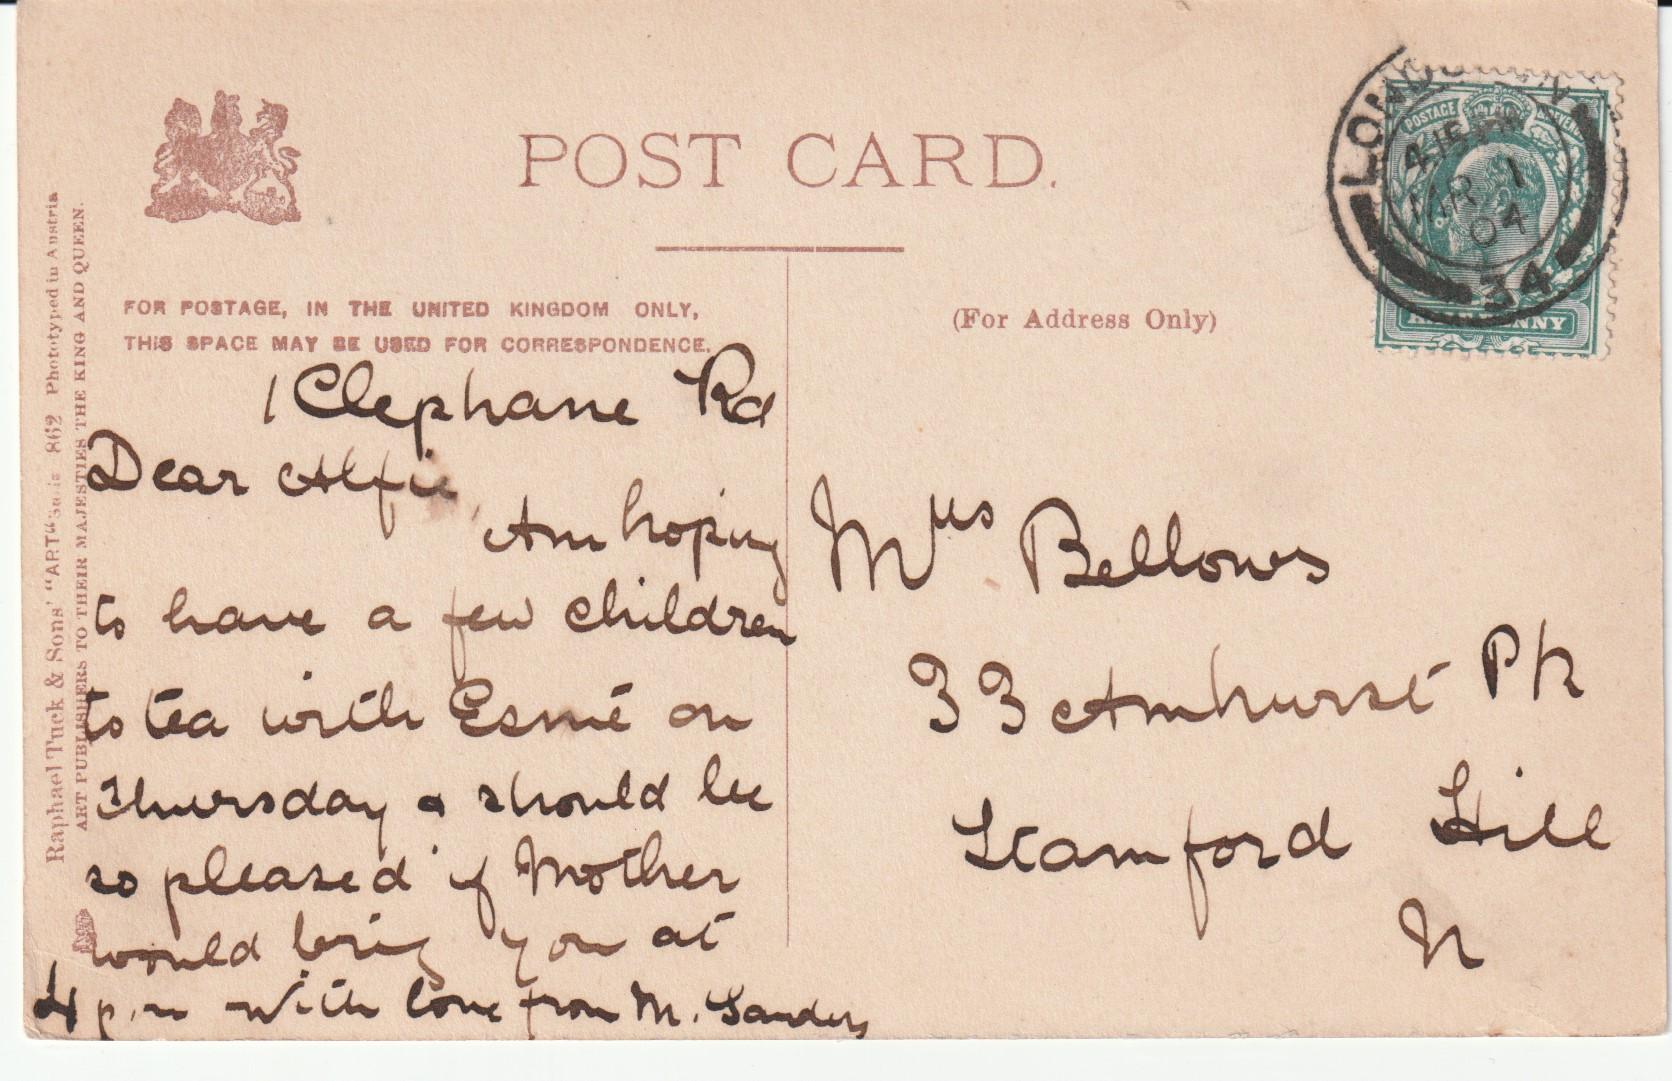 POST CARD.
FOR POSTAGE, IN THE UNITED KINGDOM ONLY,
THIS SPACE MAY BE USED FOR CORRESPONDENCE.
(For Address Only)
Raphael Tuck & Sons' "ART" Serie 862 Phototyped in Austria
ART PUBLISHERS TO THEIR MAJESTIES THE KING AND QUEEN.
1 Clephane Rd
Dear Alfie
Am hoping
to have a few children
to tea with Esmé on
Thursday & should be
so pleased if Mother
would bring you at
4 p.m with love from M. Sanders
Mrs Bellows
33 Amhurst Pk
Stamford Hill
N
LONDON N
4.15 PM
MR 1
04
34
POSTAGE & REVENUE
HALFPENNY